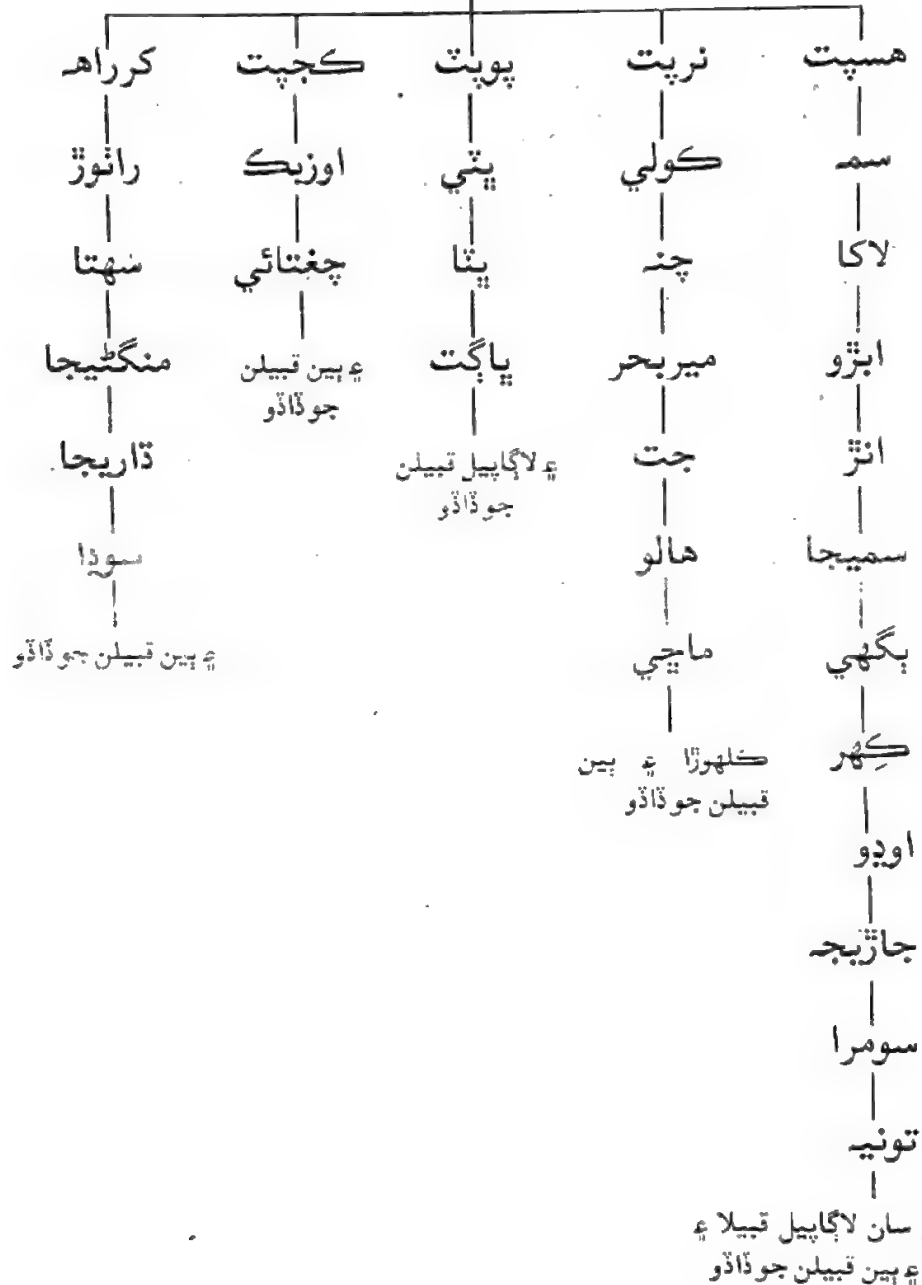 هسپت
سمہ
لاکا
ابڙو
انڙ
سميجا
ٻگهي
ڪِهر
اوڍو
جاڙيجہ
سومرا
تونيہ
سان لاڳاپيل قبيلا ۽
۽ ٻين قبيلن جو ڏاڏو
نرپت
ڪولي
چنہ
ميربحر
جت
هالو
ماڇي
ڪلهوڙا ۽ ٻين
قبيلن جو ڏاڏو
پوپٽ
ڀٽي
ڀٽا
ڀاڳت
۽ لاڳاپيل قبيلن
جو ڏاڏو
ڪجپت
اوزبڪ
چغتائي
۽ ٻين قبيلن
جو ڏاڏو
کرراهہ
راٺوڙ
سهتا
منگڻيجا
ڌاريجا
سوڍا
۽ ٻين قبيلن جو ڏاڏو